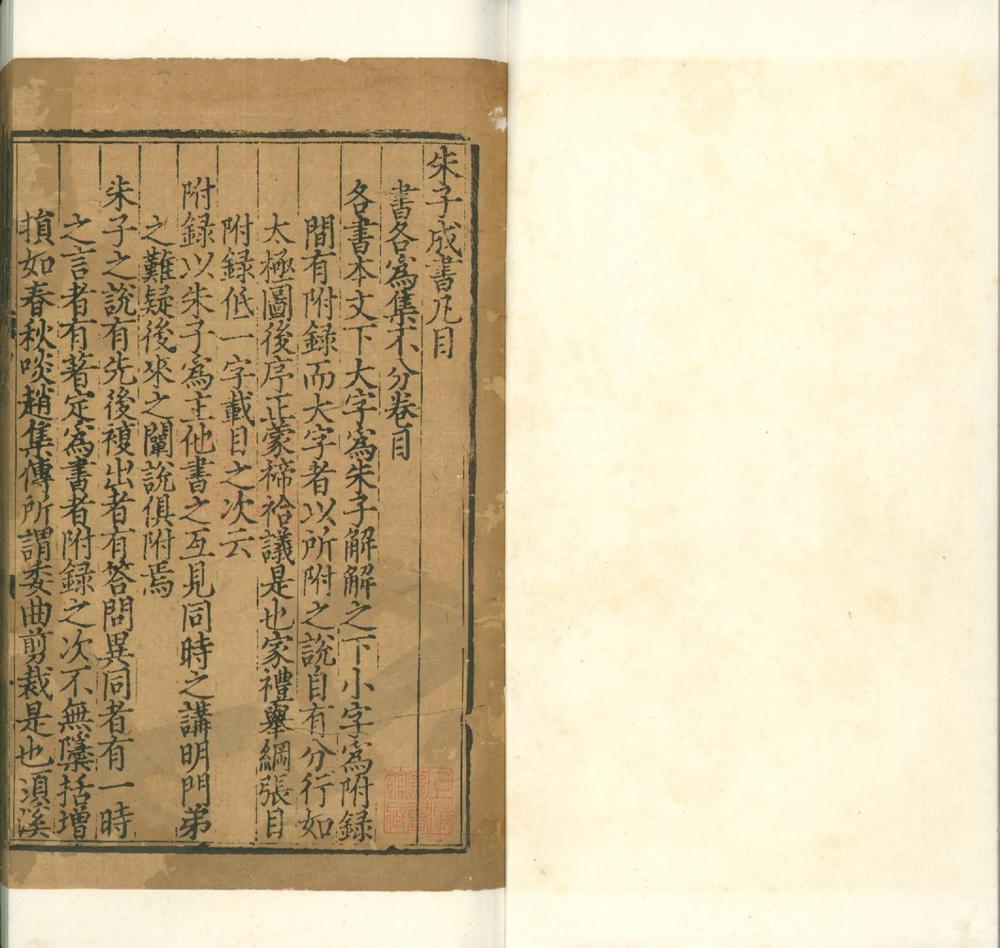 朱子成書凡目
書各爲集不分卷目
各書本文下大字爲朱子解解之下小字爲附錄
間有附録而大字者以所附之說自有分行如
太極圖後序正蒙禘祫議是也家禮舉綱張目
附録低一字載目之次云
附録以朱子爲主他書之互見同時之講明門弟
之難疑後來之闡說俱附焉
朱子之說有先後複出者有荅問異同者有一時
之言者有著定爲書者附録之次不無檃括增
損如春秋啖趙集傳所謂委曲剪裁是也湏溪